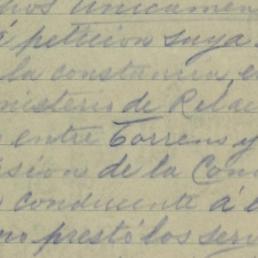 hos únicamen
á peticion suya
la constancia, e
nisterio de Relac
entre Torrens y
sión de la Com
conducente á l
no prestó los serv